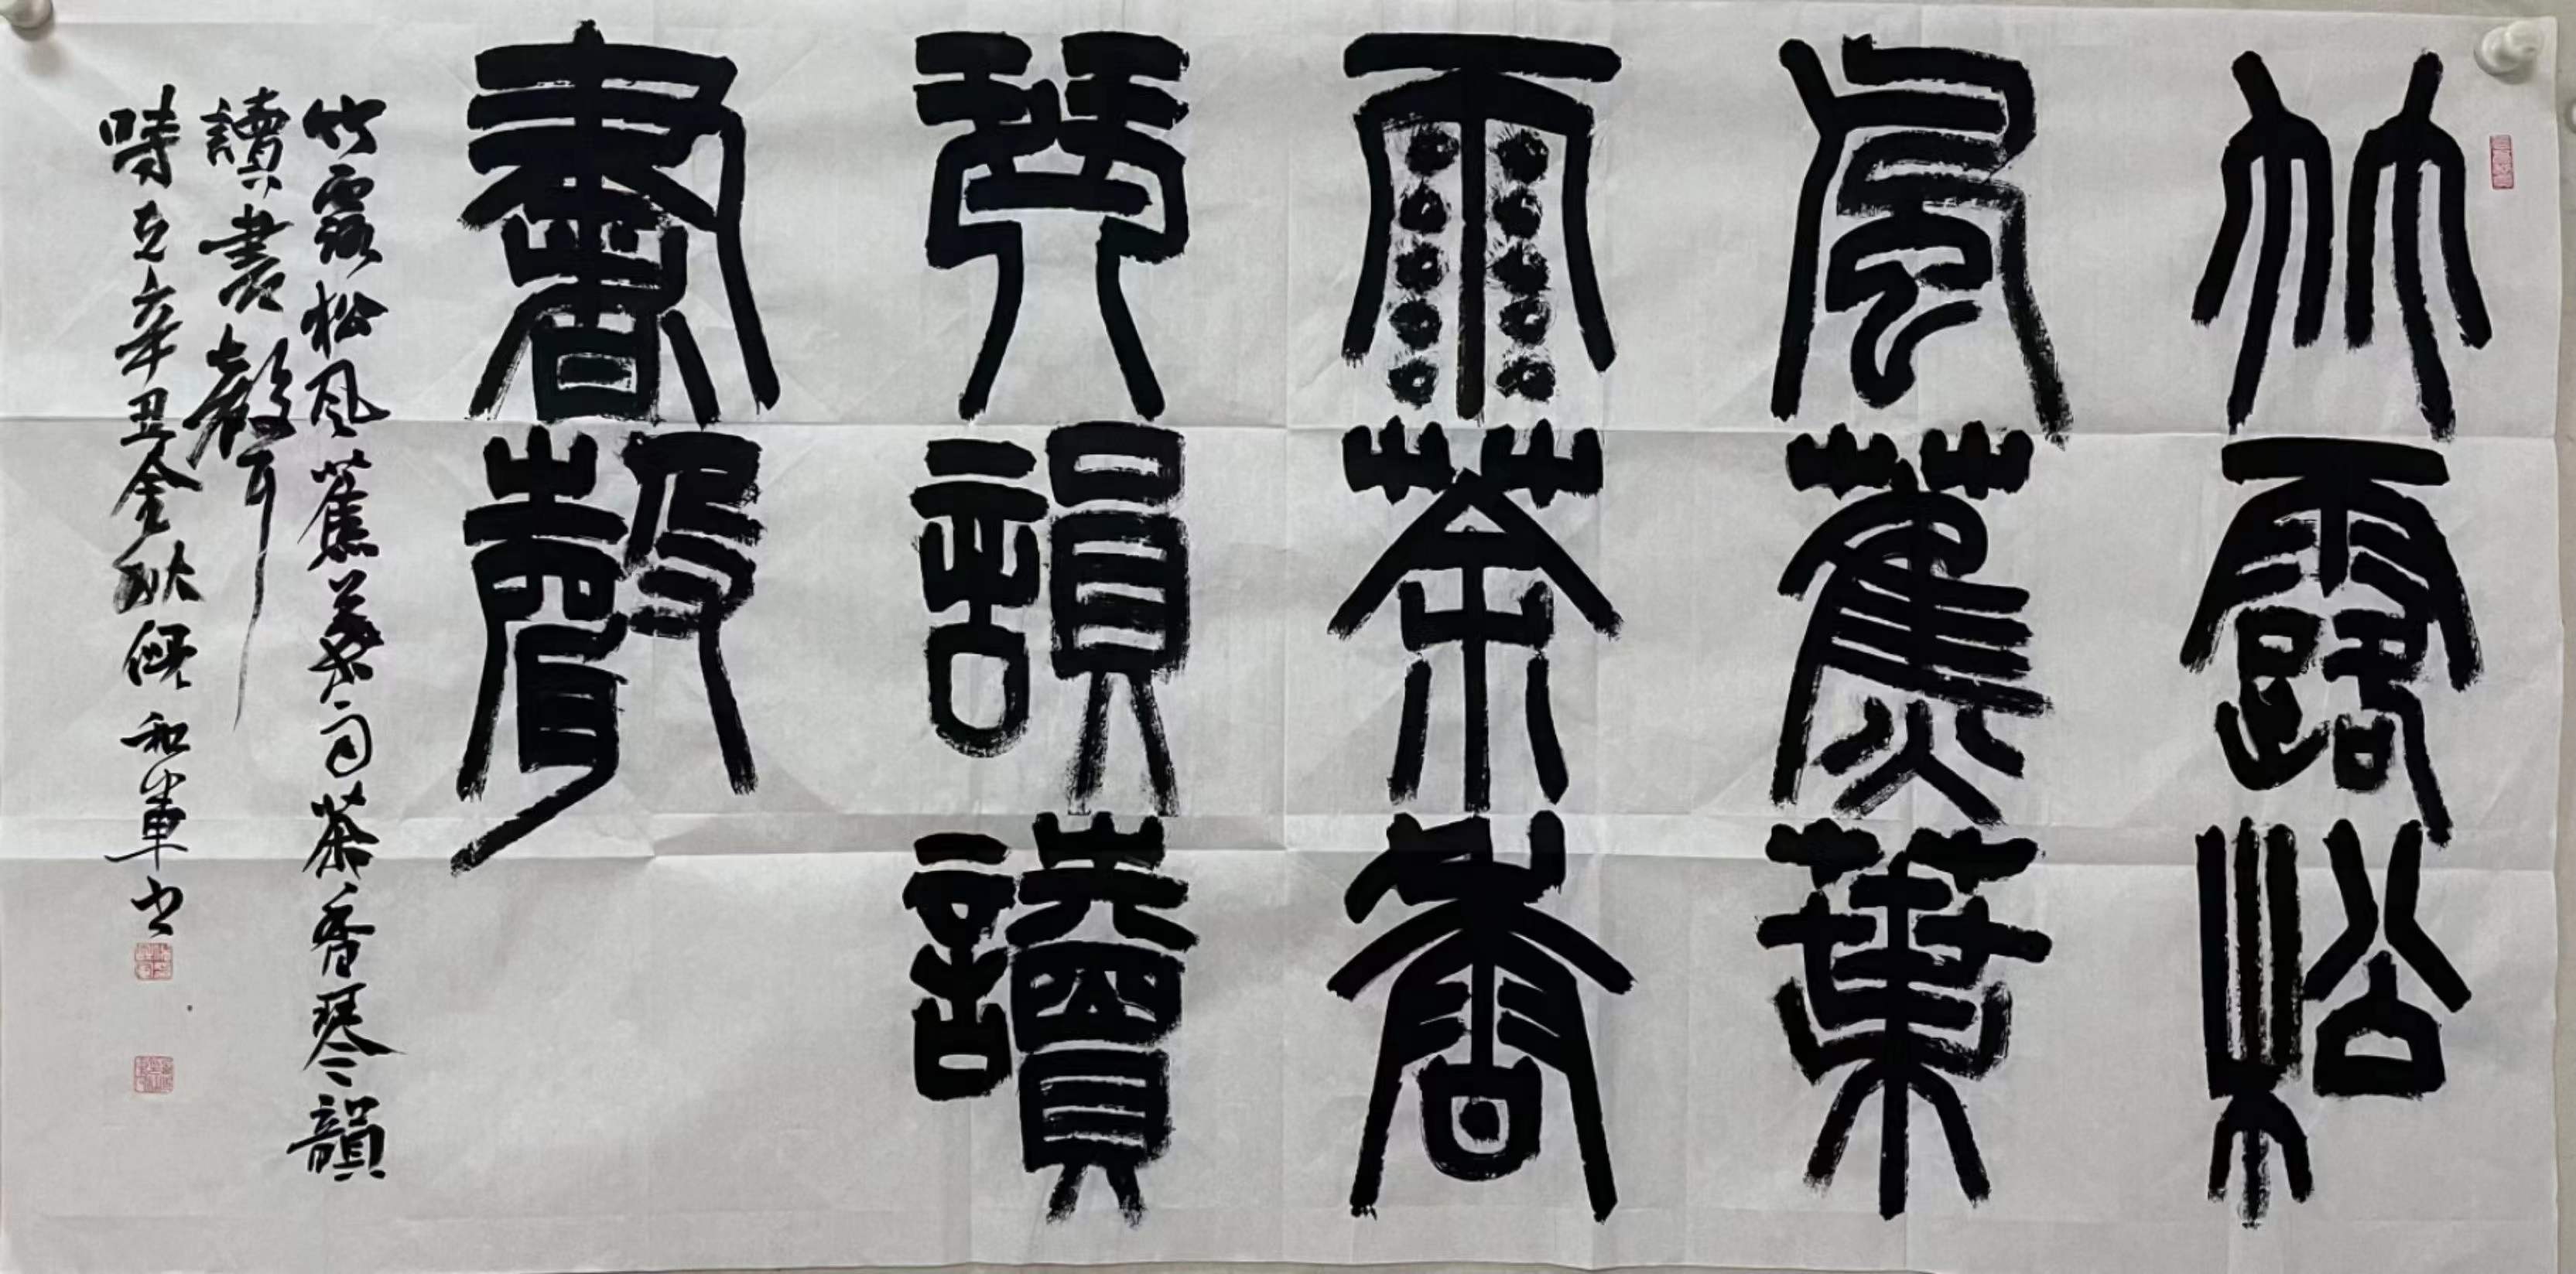 竹露松
風蕉葉
雨茶香
琴韻讀
書聲
竹露松風蕉葉雨茶香琴韻
讀書聲
時在辛丑金秋 和軍书